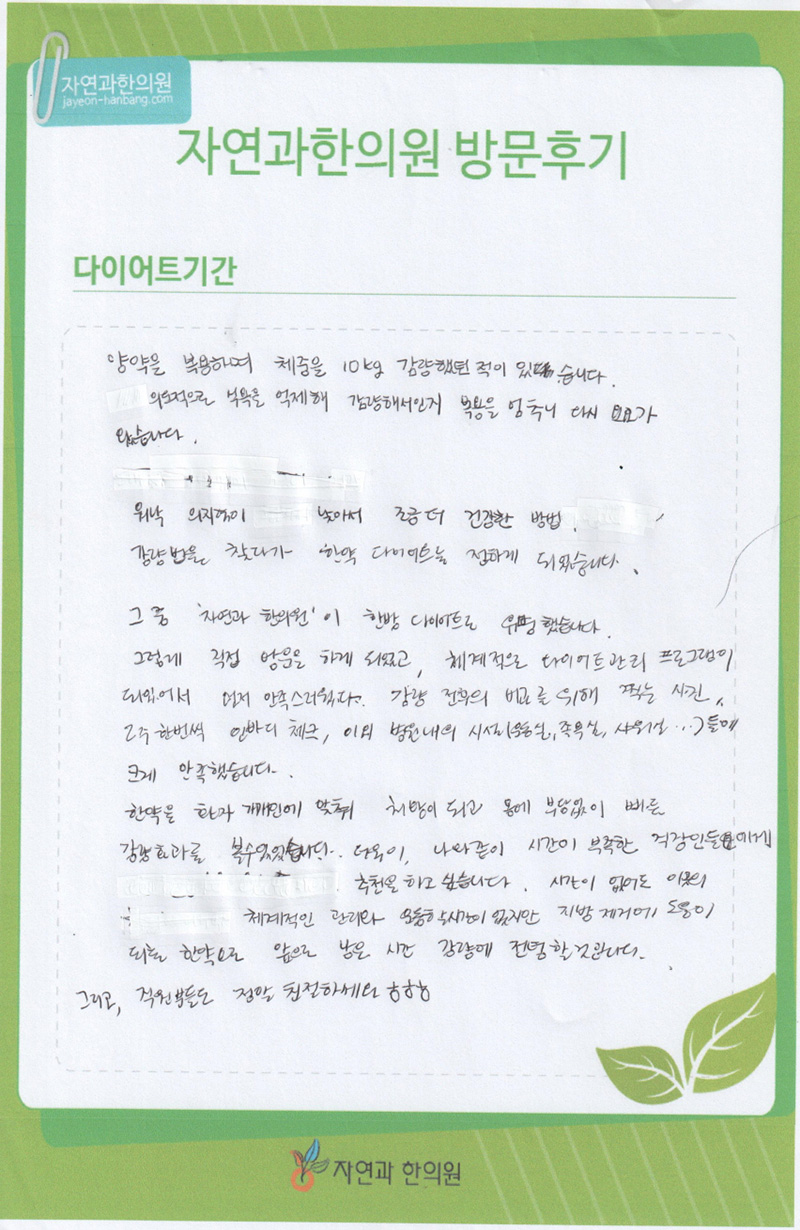 자연과한의원
jayeon-hanbang.com
자연과한의원 방문후기
다이어트기간
양약을 복용하며 체중을 10kg 감량했던 적이 있습니다.
의도적으로 식욕을 억제해 감량해서인지 복용을 멈추니 다시 요요가
왔습니다.
워낙 의지력이 낮아서 조금 더 건강한 방법.
감량법을 찾다가 한약 다이어트를 접하게 되었습니다.
그 중 '자연과 한의원' 이 한방 다이어트로 유명했습니다.
그렇게 직접 방문을 하게 되었고, 체계적으로 다이어트관리 프로그램이
되있어서 만족스러웠다. 감량 전후의 비교를 위해 찍는 사진,
2주 한번씩 인바디 체크, 이외 병원내의 시설(운동실, 족욕실, 샤워실 …) 들에
크게 만족했습니다.
한약을 환자 개개인에 맞춰 처방이 되고 몸에 부담없이 빠른
감량효과를 볼수있었습니다. 더욱이, 나와같이 시간이 부족한 직장인들에게
추천을 하고 싶습니다. 시간이 없어도 이곳의
체계적인 관리와 운동할시간이 없지만 지방 제거에 도움이
되는 한약으로 앞으로 남은 시간 감량에 전념할것입니다.
그리고, 직원분들도 정말 친절하세요 ㅎㅎㅎ
자연과 한의원